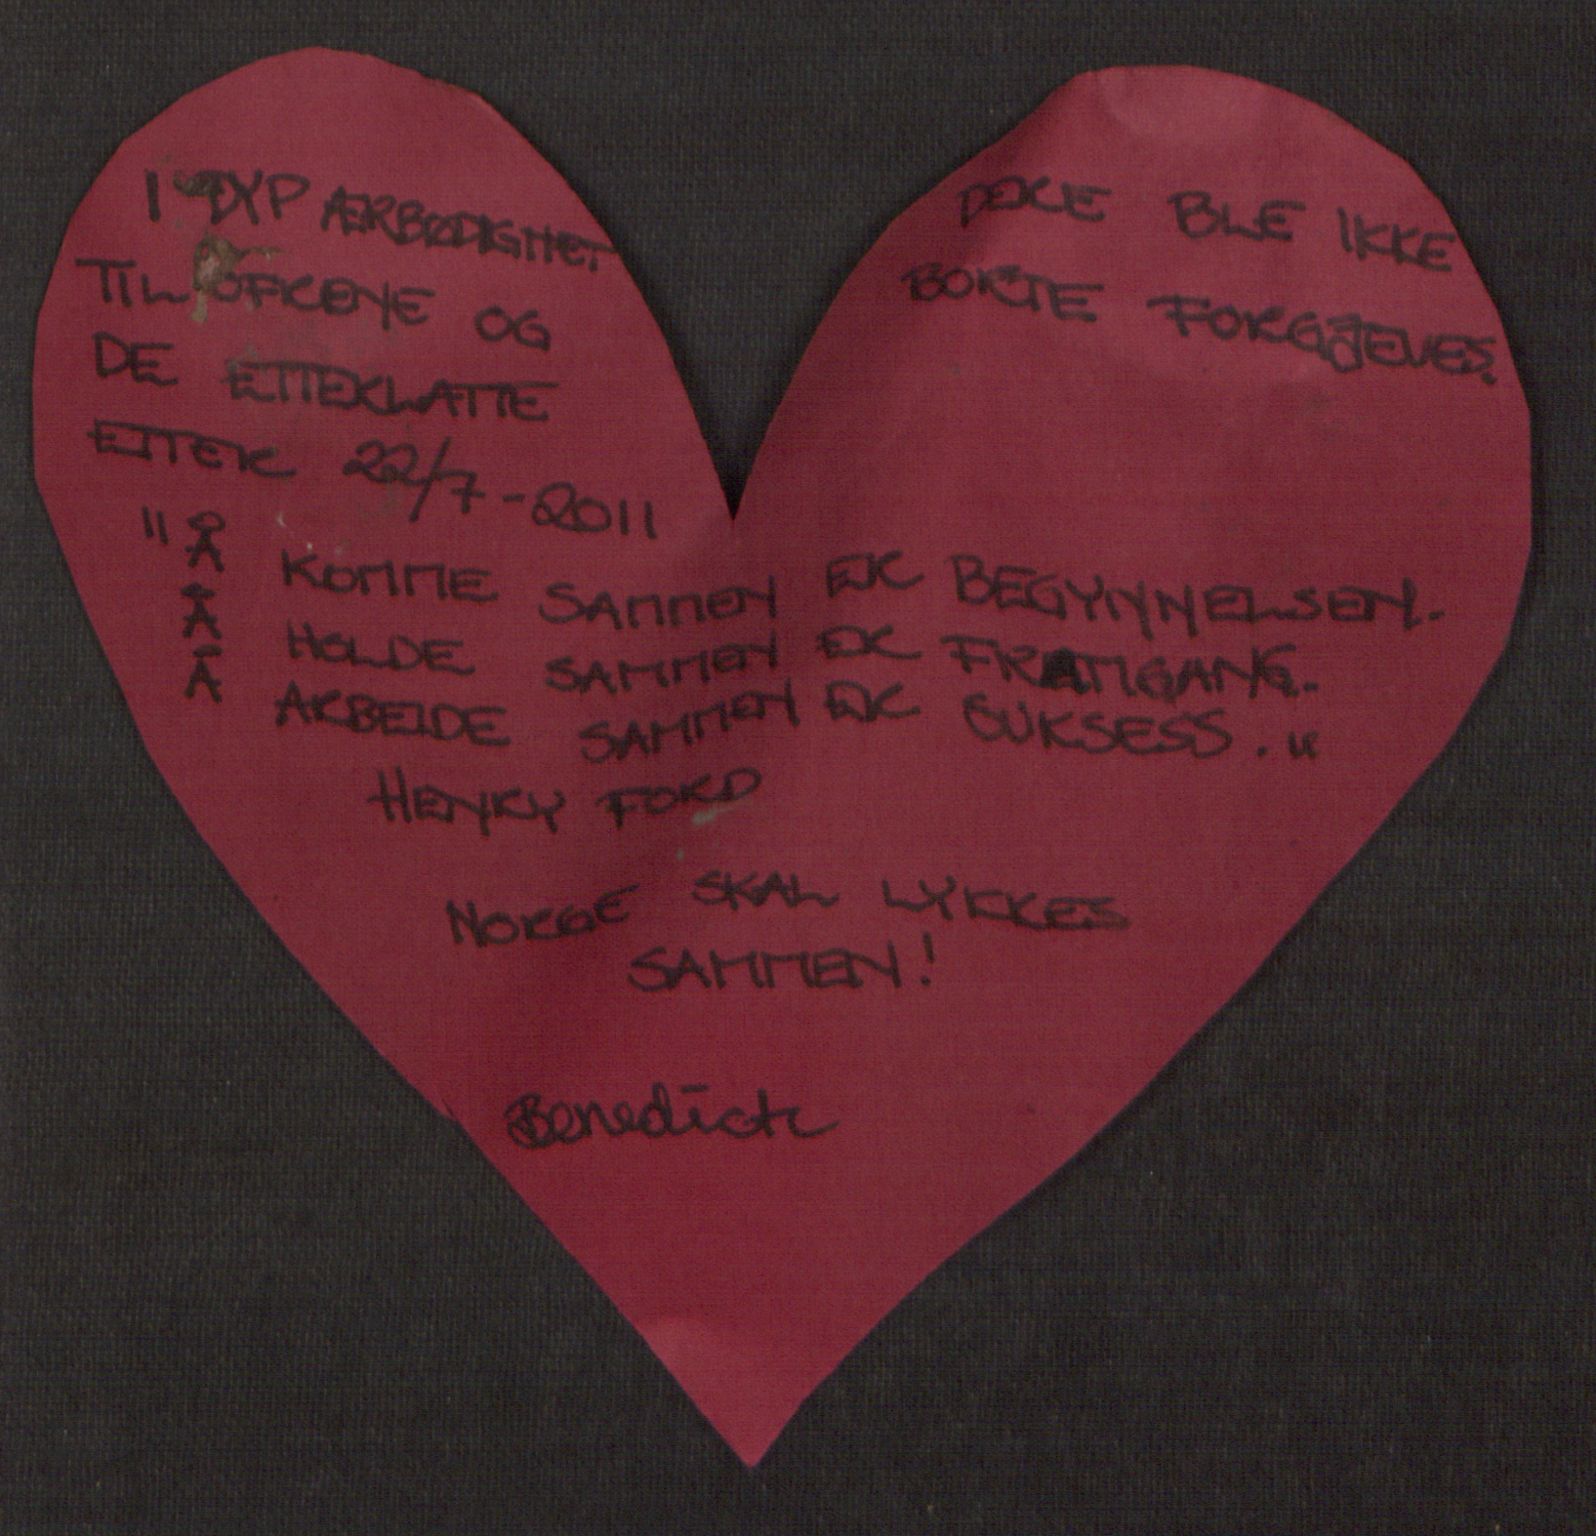 I DYP ÆRBØDIGHET
TIL OFRENE OG
DE ETTERLATTE
ETTER 22/7-2011
DERE BLE IKKE
BORTE FORGJEVES.
"Å KOMME SAMMEN ER BEGYNNELSEN.
Å HOLDE SAMMEN ER FRAMGANG.
Å ARBEIDE SAMMEN ER SUKSESS."
HENRY FORD
NORGE SKAL LYKKES
SAMMEN!
Benedicte